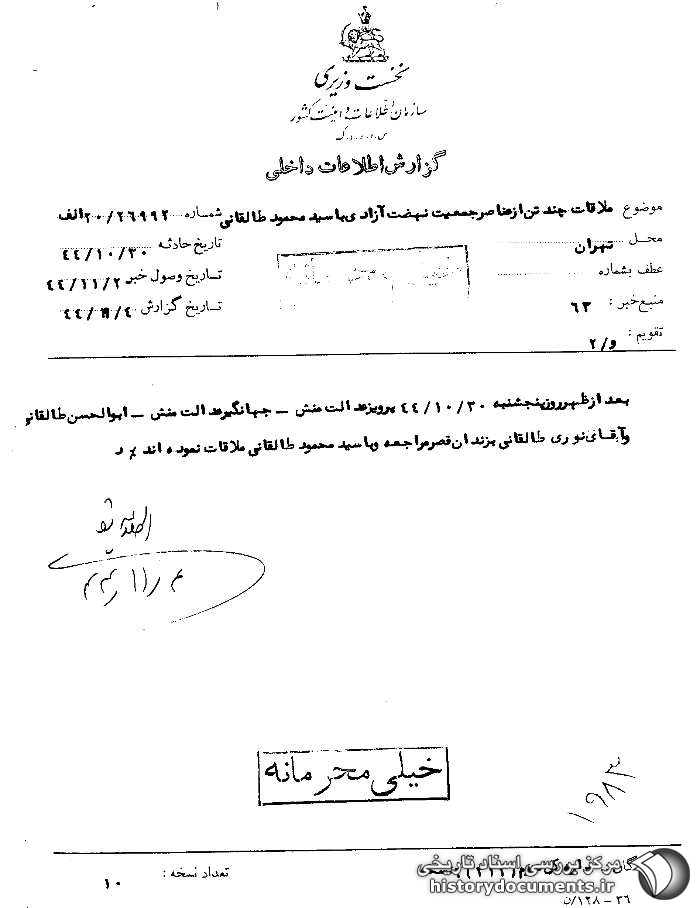 نخست وزیری
سازمان اطلاعات و امنیت کشور
س.ا.و.ا.ک
گزارش اطلاعات داخلی
موضوع ملاقات چند تن از عناصر جمعیت نهضت آزادی با سید محمود طالقانی شماره ۲۰/۲۶۹۹۲الف
محل تهران تاریخ حادثه ۴۴/۱۰/۳۰
عطف بشماره تاریخ وصول خبر ۴۴/۱۱/۲
منبع خبر : ۶۳ تاریخ گزارش ۴۴/۱۱/۴
تقویم : و/۲
خیلی محرمانه
بعد از ظهر روز پنجشنبه ۴۴/۱۰/۳۰ پرویز عدالت منش – جهانگیر عدالت منش – ابوالحسن طالقانی
و آقای نوری طالقانی بزندان قصر مراجعه و با سید محمود طالقانی ملاقات نموده اند ٪ د
خیلی محرمانه
۱۹۸۳
تعداد نسخه : ۱۰
مرکز بررسی اسناد تاریخی
historydocuments.ir
۳۶ – ۱۲۸/ن